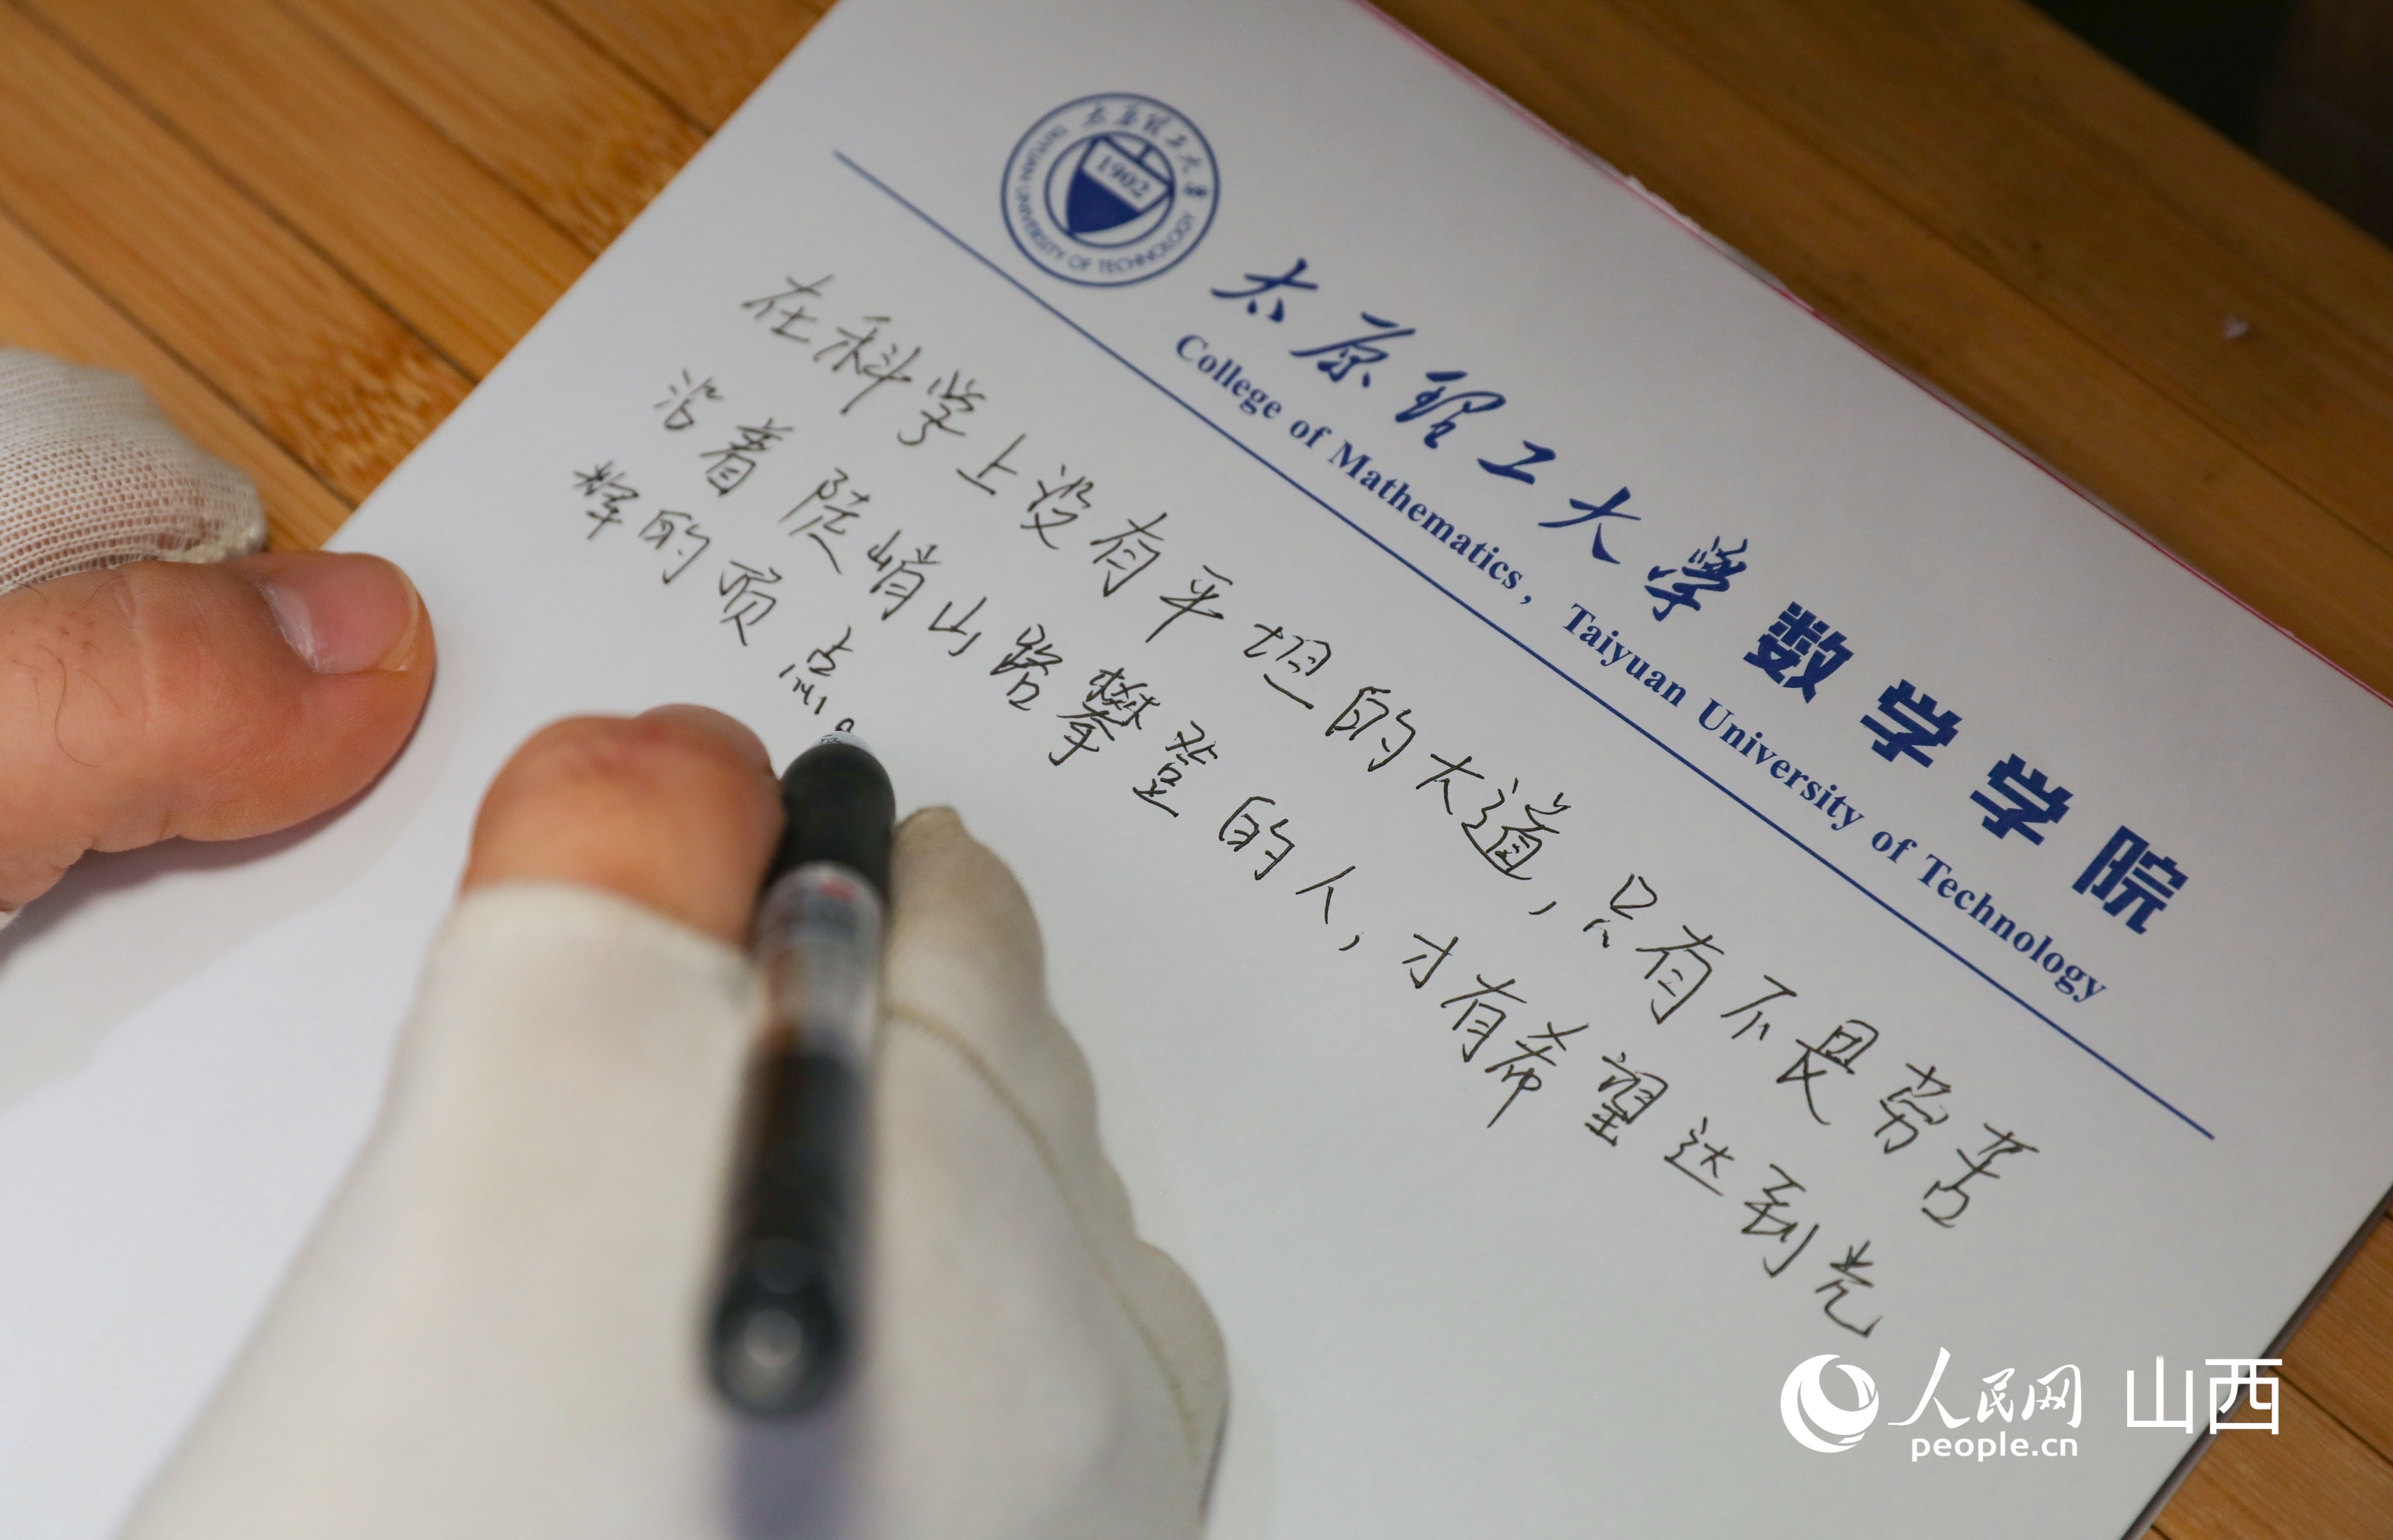 太原理工大学
TAIYUAN UNIVERSITY OF TECHNOLOGY
1902
太原理工大学 数学学院
College of Mathematics, Taiyuan University of Technology
在科学上没有平坦的大道，只有不畏劳苦
沿着陡峭山路攀登的人，才有希望达到光
辉的顶点。
人民网 山西
people.cn